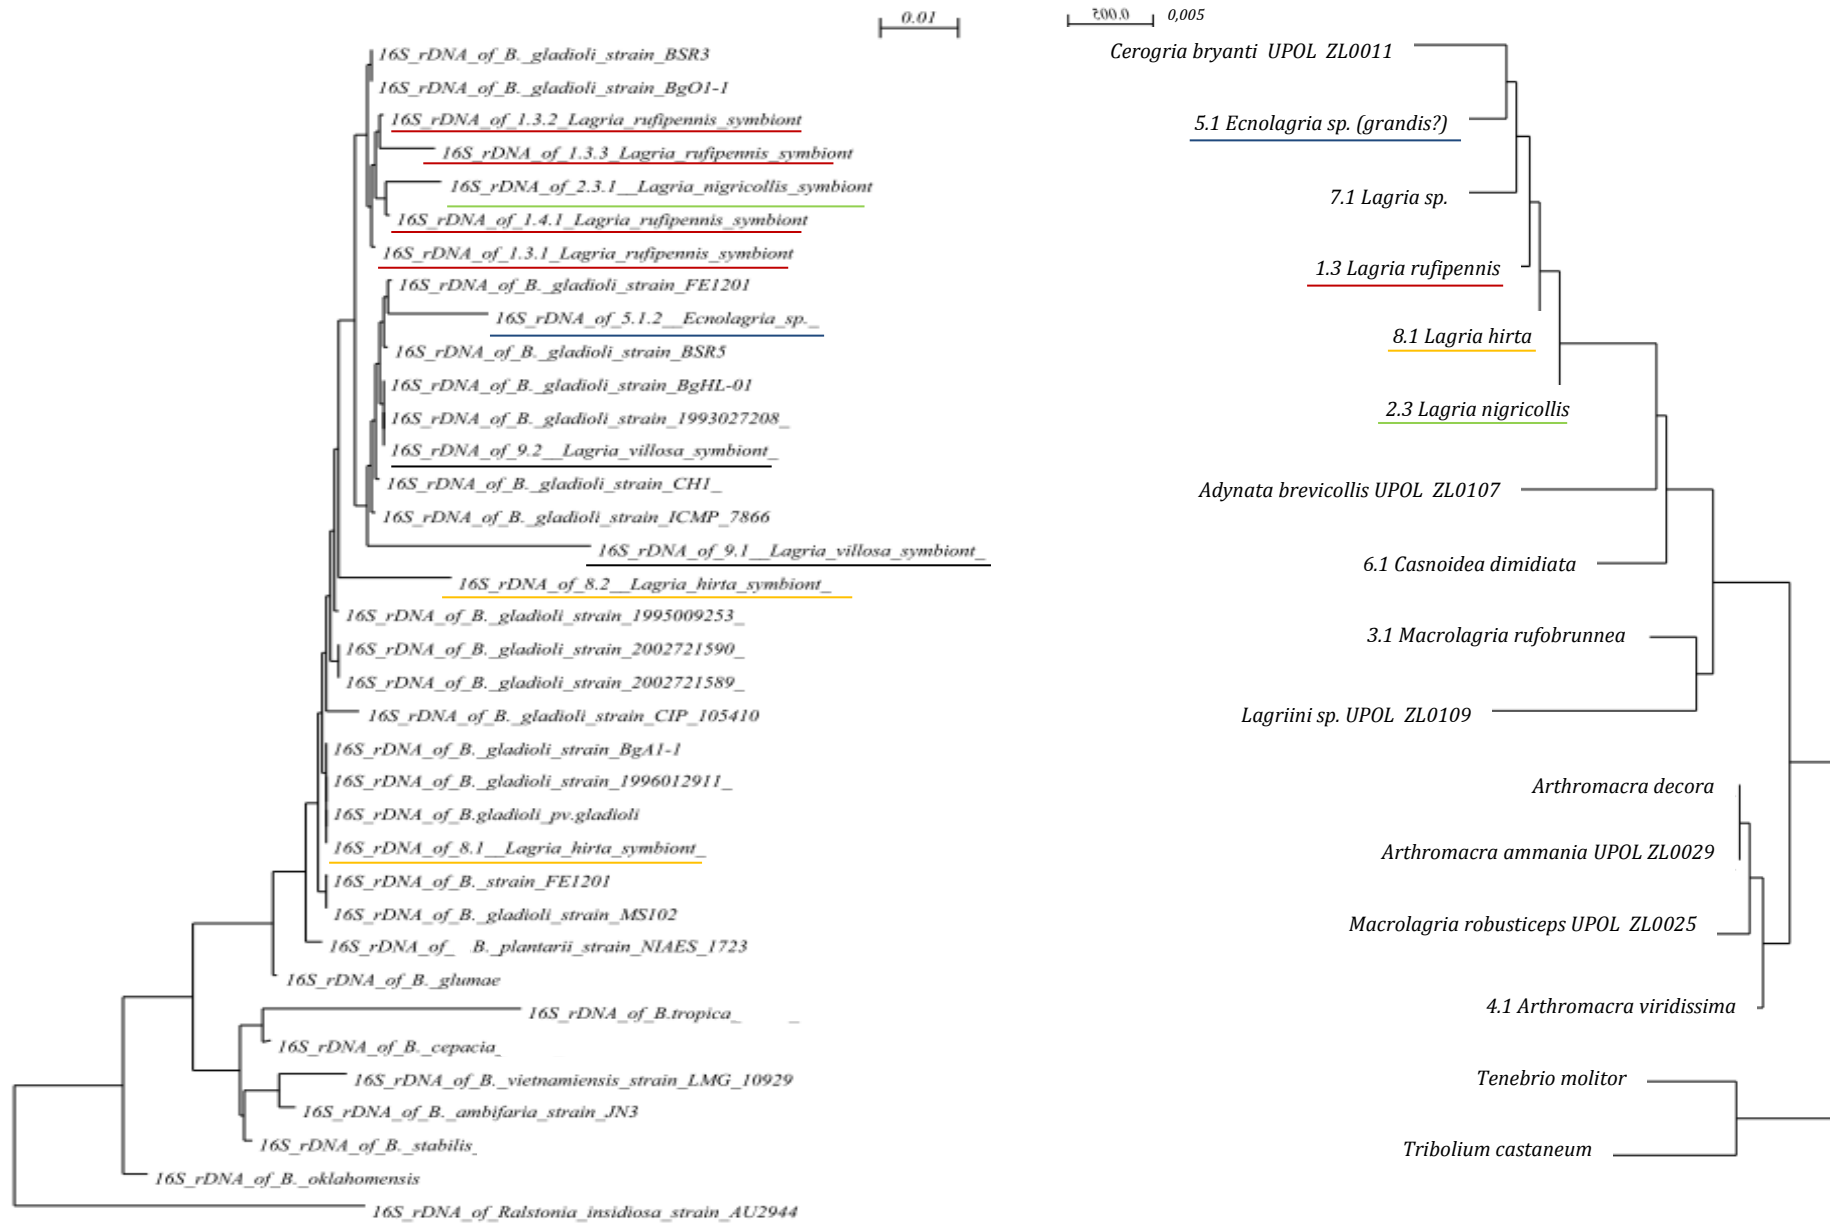 0.01
0.005 0,005
16S_rDNA_of_B._gladioli_strain_BSR3
16S_rDNA_of_B._gladioli_strain_BgO1-1
16S_rDNA_of_1.3.2_Lagria_rufipennis_symbiont
16S_rDNA_of_1.3.3_Lagria_rufipennis_symbiont
16S_rDNA_of_2.3.1__Lagria_nigricollis_symbiont
16S_rDNA_of_1.4.1_Lagria_rufipennis_symbiont
16S_rDNA_of_1.3.1_Lagria_rufipennis_symbiont
16S_rDNA_of_B._gladioli_strain_FE1201
16S_rDNA_of_5.1.2__Ecnolagria_sp._
16S_rDNA_of_B._gladioli_strain_BSR5
16S_rDNA_of_B._gladioli_strain_BgHL-01
16S_rDNA_of_B._gladioli_strain_1993027208_
16S_rDNA_of_9.2__Lagria_villosa_symbiont_
16S_rDNA_of_B._gladioli_strain_CH1_
16S_rDNA_of_B._gladioli_strain_ICMP_7866
16S_rDNA_of_9.1__Lagria_villosa_symbiont_
16S_rDNA_of_8.2__Lagria_hirta_symbiont_
16S_rDNA_of_B._gladioli_strain_1995009253_
16S_rDNA_of_B._gladioli_strain_2002721590_
16S_rDNA_of_B._gladioli_strain_2002721589_
16S_rDNA_of_B._gladioli_strain_CIP_105410
16S_rDNA_of_B._gladioli_strain_BgA1-1
16S_rDNA_of_B._gladioli_strain_1996012911_
16S_rDNA_of_B.gladioli_pv.gladioli
16S_rDNA_of_8.1__Lagria_hirta_symbiont_
16S_rDNA_of_B._strain_FE1201
16S_rDNA_of_B._gladioli_strain_MS102
16S_rDNA_of_ B._plantarii_strain_NIAES_1723
16S_rDNA_of_B._glumae
16S_rDNA_of_B.tropica_ _
16S_rDNA_of_B._cepacia_
16S_rDNA_of_B._vietnamiensis_strain_LMG_10929
16S_rDNA_of_B._ambifaria_strain_JN3
16S_rDNA_of_B._stabilis_
16S_rDNA_of_B._oklahomensis
16S_rDNA_of_Ralstonia_insidiosa_strain_AU2944
Cerogria bryanti UPOL ZL0011
5.1 Ecnolagria sp. (grandis?)
7.1 Lagria sp.
1.3 Lagria rufipennis
8.1 Lagria hirta
2.3 Lagria nigricollis
Adynata brevicollis UPOL ZL0107
6.1 Casnoidea dimidiata
3.1 Macrolagria rufobrunnea
Lagriini sp. UPOL ZL0109
Arthromacra decora
Arthromacra ammania UPOL ZL0029
Macrolagria robusticeps UPOL ZL0025
4.1 Arthromacra viridissima
Tenebrio molitor
Tribolium castaneum